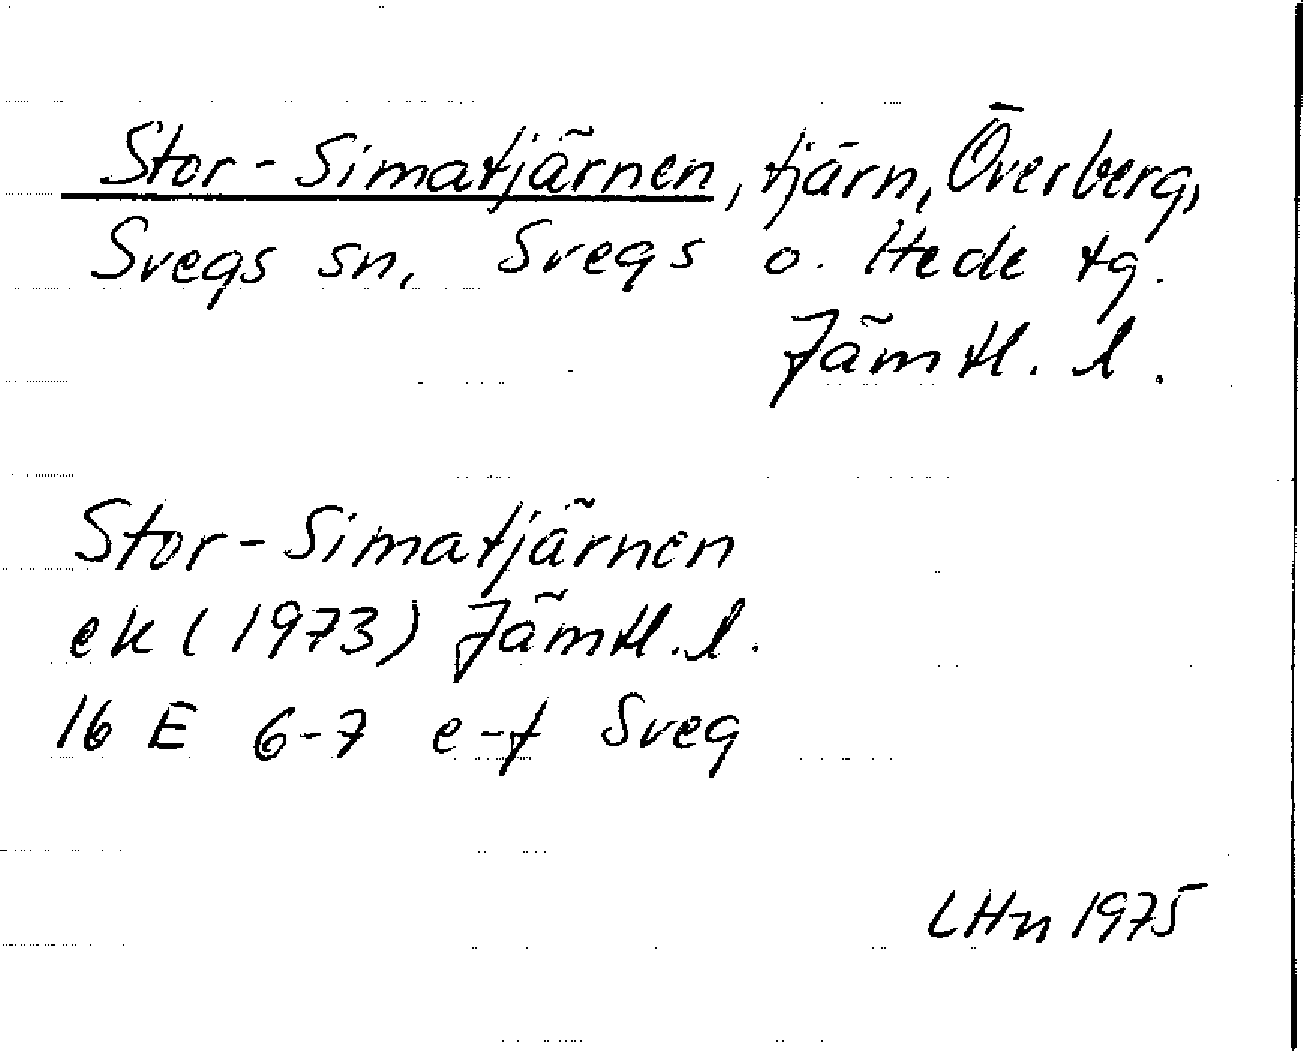 Stor-Simatjärnen, tjärn, Överberg,
Svegs sn, Svegs o. Hede tg.
Jämtl. l.
Stor-Simatjärnen
ek (1973) Jämtl. l.
16 E 6-7 e-f Sveg
LHn 1975